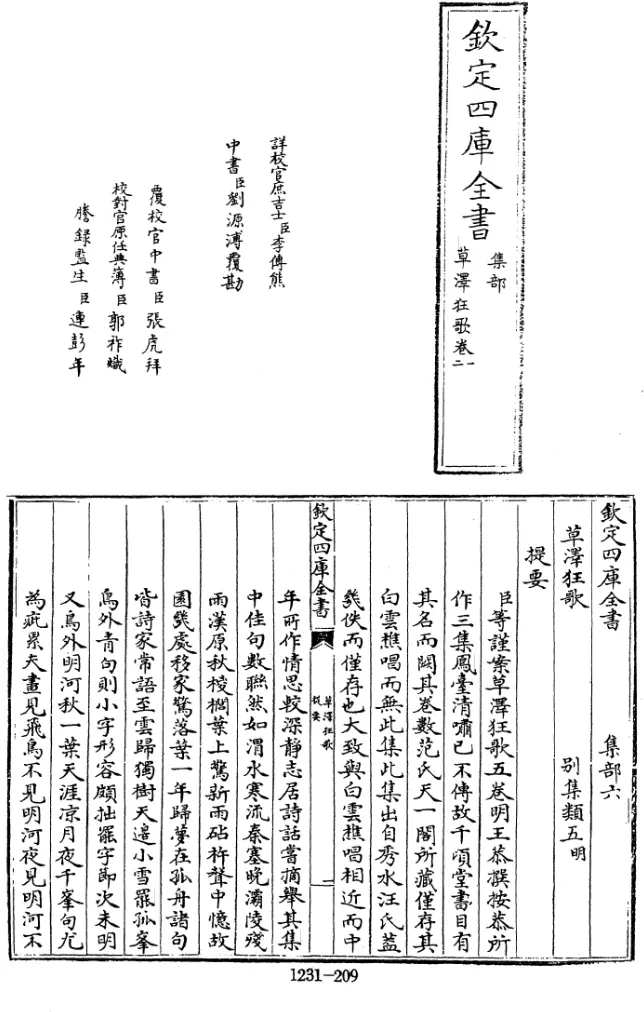 欽定四庫全書
集部
草澤狂歌卷一
二
詳校官庶吉士臣李傳熊
中書臣劉源溥覆勘
覆校官中書臣張虎拜
校對官原任典簿臣郭祚熾
謄錄監生臣連彭年
欽定四庫全書 集部六
草澤狂歌 别集類五明
提要
臣等謹案草澤狂歌五卷明王恭撰按恭所
作三集鳳臺清嘯已不傳故千頃堂書目有
其名而闕其卷數范氏天一閣所藏僅存其
白雲樵唱而無此集此集出自秀水汪氏葢
幾佚而僅存也大致與白雲樵唱相近而中
欽定四庫全書
草澤狂歌
提要
一
年所作情思較深靜志居詩話嘗摘舉其集
中佳句數聯然如渭水寒流秦塞晚灞陵殘
雨漢原秋椶櫚葉上驚新雨砧杵聲中憶故
園幾處移家驚落葉一年歸夢在孤舟諸句
皆詩家常語至雲歸獨樹天邉小雪罷孤峯
鳥外青句則小字形容頗拙罷字即次未明
又鳥外明河秋一葉天涯凉月夜千峯句尤
為疵累夫晝見飛鳥不見明河夜見明河不
1231-209